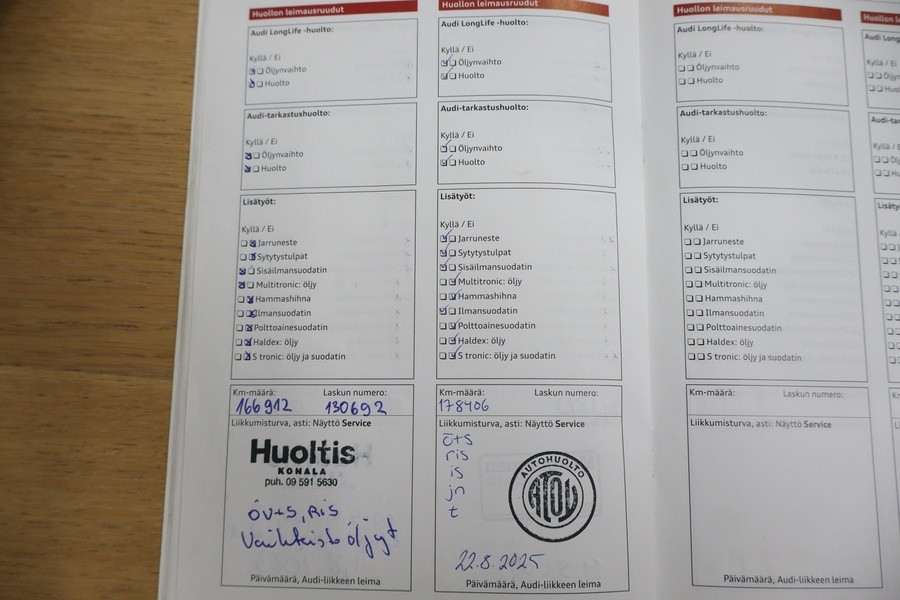 Huollon leimausruudut
Audi LongLife -huolto:
Kyllä / Ei
Öljynvaihto
Huolto
Audi-tarkastushuolto:
Kyllä / Ei
Öljynvaihto
Huolto
Lisätyöt:
Kyllä / Ei
Jarruneste
Sytytystulpat
Sisäilmansuodatin
Multitronic: öljy
Hammashihna
Ilmansuodatin
Polttoainesuodatin
Haldex: öljy
S tronic: öljy ja suodatin
Km-määrä: Laskun numero:
166912 130692
Liikkumisturva, asti: Näyttö Service
Huoltis
KONALA
puh. 09 591 5630
öv+s, RiS
Vaihteistoöljyt
Päivämäärä, Audi-liikkeen leima
Huollon leimausruudut
Audi LongLife -huolto:
Kyllä / Ei
Öljynvaihto
Huolto
Audi-tarkastushuolto:
Kyllä / Ei
Öljynvaihto
Huolto
Lisätyöt:
Kyllä / Ei
Jarruneste
Sytytystulpat
Sisäilmansuodatin
Multitronic: öljy
Hammashihna
Ilmansuodatin
Polttoainesuodatin
Haldex: öljy
S tronic: öljy ja suodatin
Km-määrä: Laskun numero:
178406
Liikkumisturva, asti: Näyttö Service
ö+s
ris
is
jn
t
AUTOHUOLTO
ATOY
22.8.2025
Päivämäärä, Audi-liikkeen leima
Huollon leimausruudut
Audi LongLife -huolto:
Kyllä / Ei
Öljynvaihto
Huolto
Audi-tarkastushuolto:
Kyllä / Ei
Öljynvaihto
Huolto
Lisätyöt:
Kyllä / Ei
Jarruneste
Sytytystulpat
Sisäilmansuodatin
Multitronic: öljy
Hammashihna
Ilmansuodatin
Polttoainesuodatin
Haldex: öljy
S tronic: öljy ja suodatin
Km-määrä: Laskun numero:
Liikkumisturva, asti: Näyttö Service
Päivämäärä, Audi-liikkeen leima